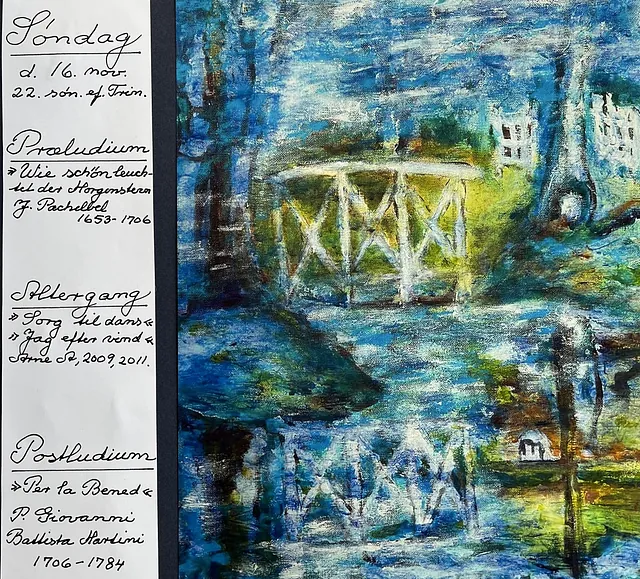 Søndag
d. 16. nov.
22. søn. ef. Trin.
Præludium
"Wie schön leuch-
tet der Morgenstern
J. Pachelbel
1653-1706
Altergang
"Sorg til dans"
"Jag efter vind"
Arne A, 2009, 2011.
Postludium
"Per la Bened"
P. Giovanni
Battista Martini
1706-1784